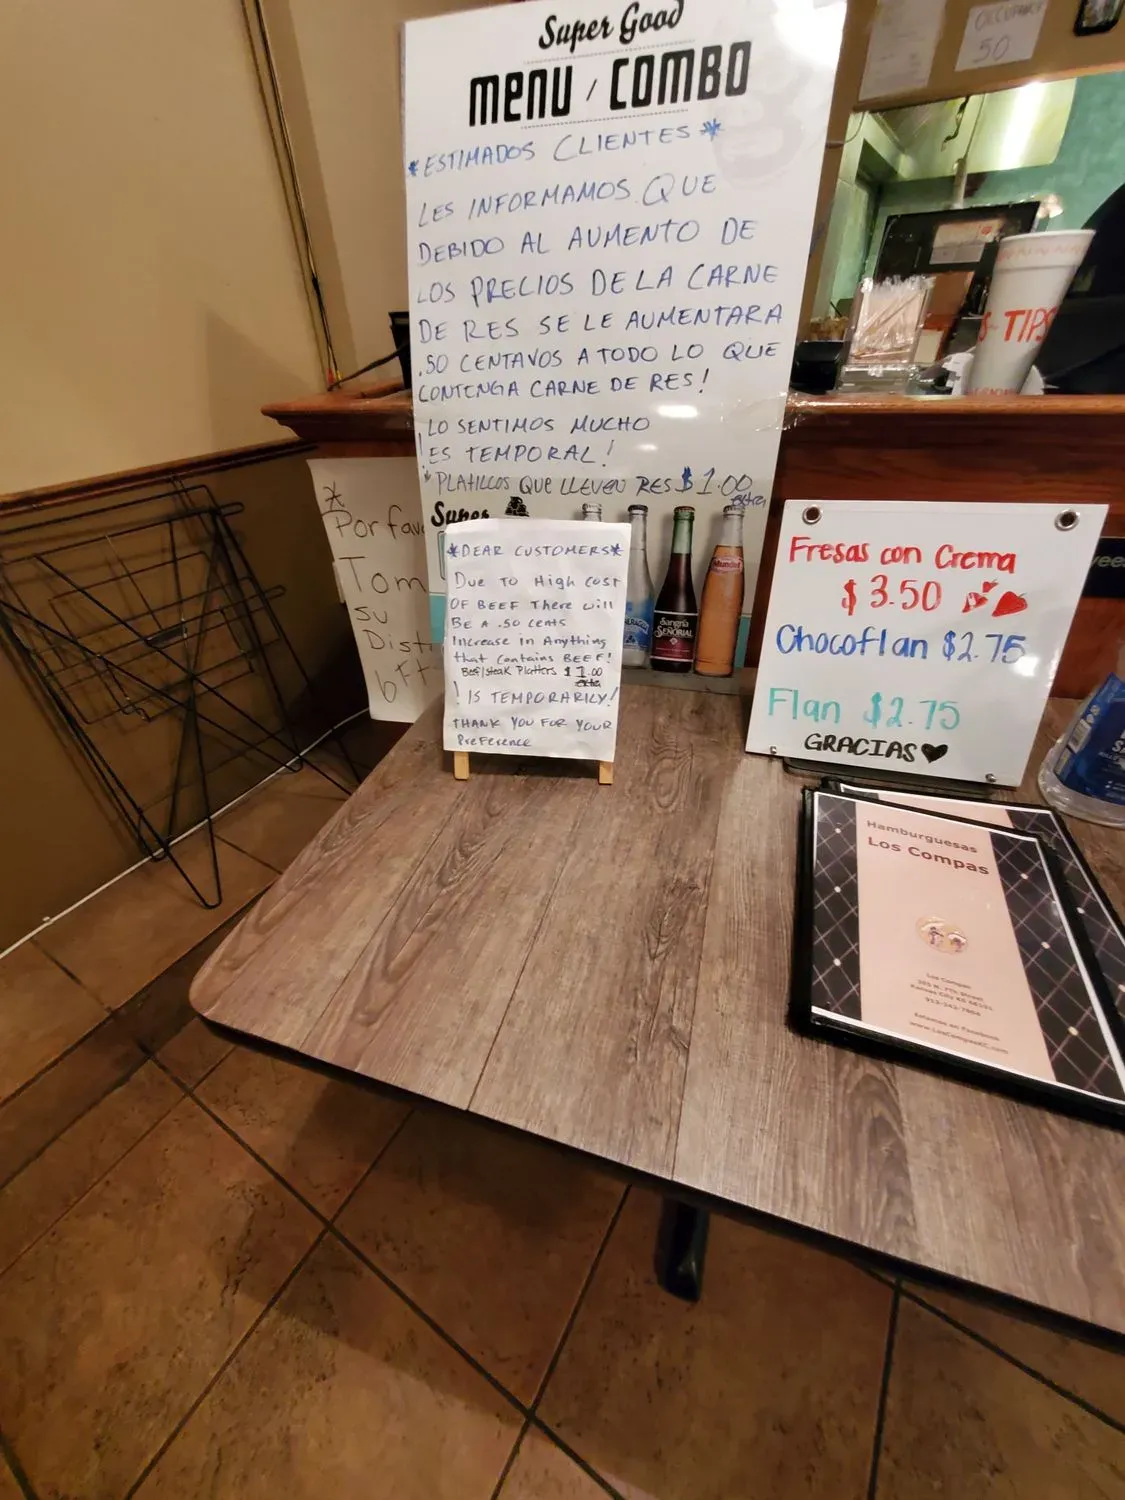 Super Good
MENU / COMBO
*ESTIMADOS CLIENTES*
LES INFORMAMOS QUE
DEBIDO AL AUMENTO DE
LOS PRECIOS DE LA CARNE
DE RES SE LE AUMENTARA
.50 CENTAVOS A TODO LO QUE
CONTENGA CARNE DE RES!
LO SENTIMOS MUCHO
¡ES TEMPORAL!
*PLATILLOS QUE LLEVEN RES $1.00
extra
Super
*DEAR CUSTOMERS*
DUE TO HIGH COST
OF BEEF THERE will
BE A .50 cents
Increase in Anything
that contains BEEF!
Beef/steak Platters $1.00
extra
! IS TEMPORARILY!
THANK YOU FOR YOUR
Preference
*
Por fav
Tom
su
Dist
6ft
Mundet
Sangría
SEÑORIAL
OCCUPANCY
50
TIPS
Fresas con Crema
$3.50
Chocoflan $2.75
Flan $2.75
GRACIAS
Hamburguesas
Los Compas
Los Compas
Kansas City KS 66101
913-242-7864
www.LosCompasKC.com